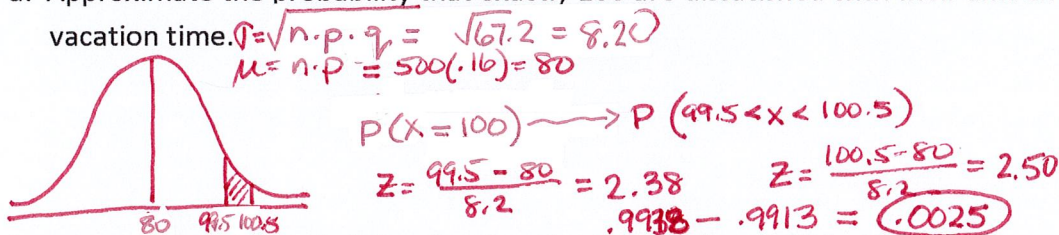 vacation time. σ=√n·p·q = √67.2 = 8.20
μ= n·p = 500(.16)= 80
P(X=100) ⟶ P (99.5<x<100.5)
Z= 99.5-80/8.2 = 2.38 Z= 100.5-80/8.2 = 2.50
80 99.5 100.5 .9938 - .9913 = .0025